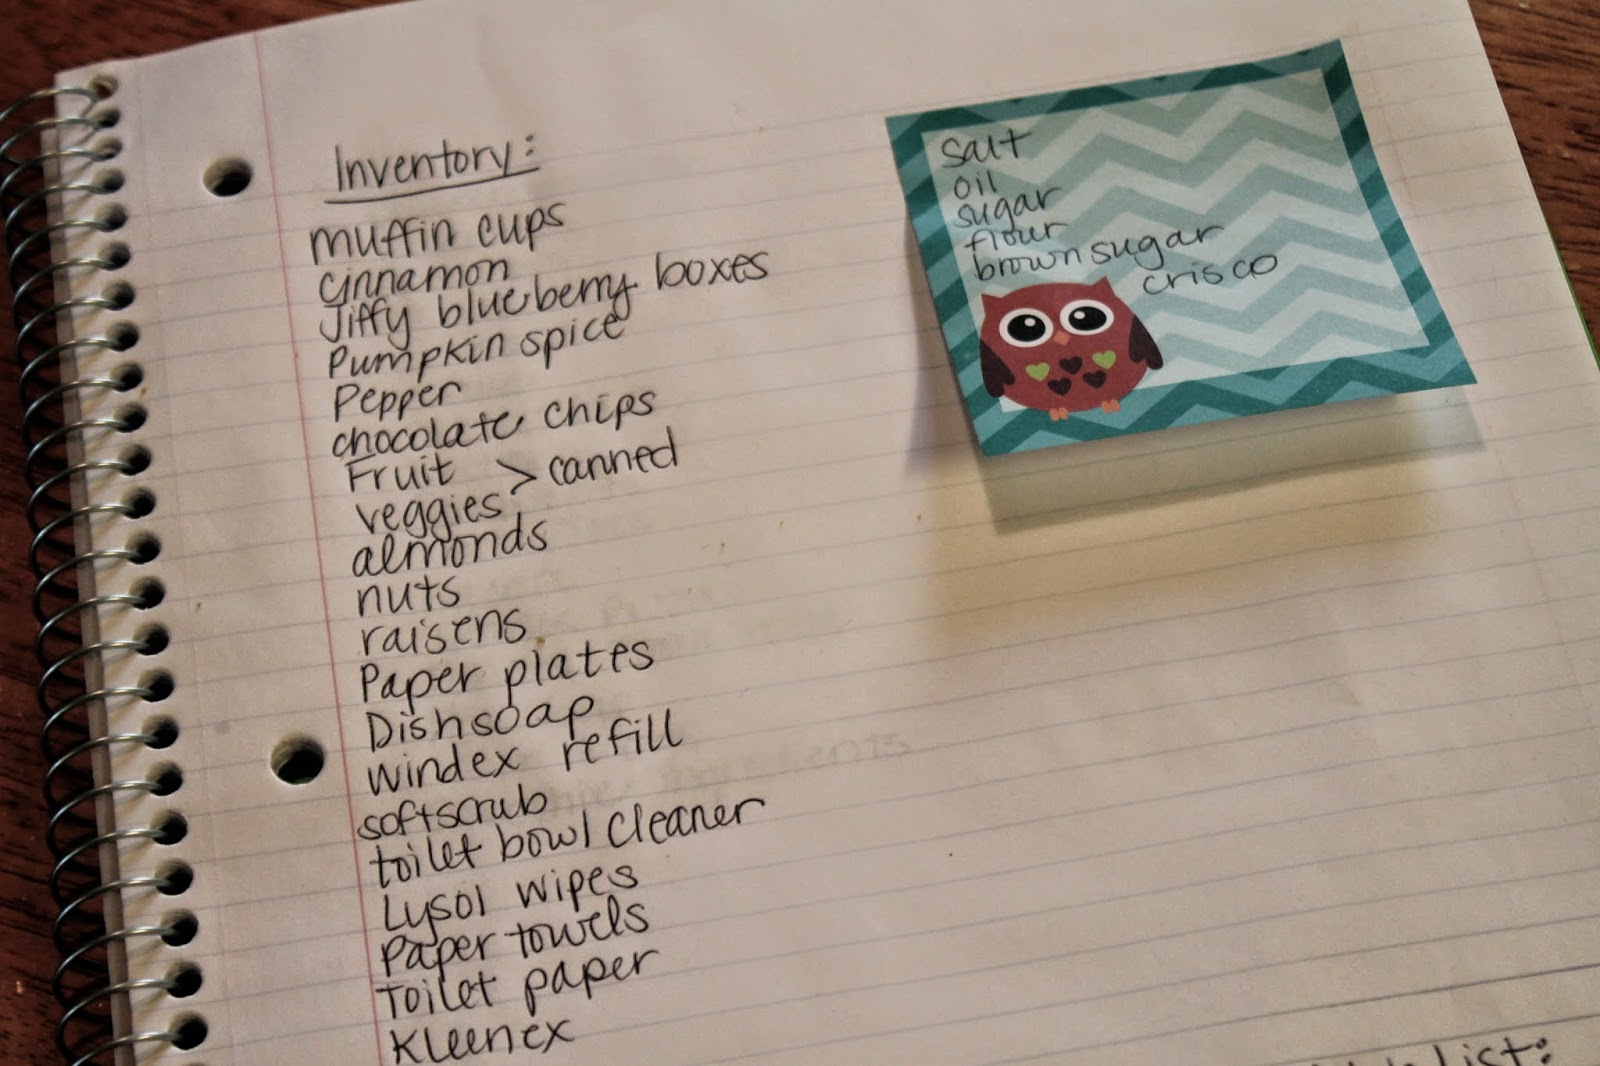 Inventory:
muffin cups
cinnamon
Jiffy blueberry boxes
Pumpkin spice
Pepper
chocolate chips
Fruit > canned
veggies
almonds
nuts
raisens
Paper plates
Dishsoap
windex refill
softscrub
toilet bowl cleaner
Lysol wipes
Paper towels
Toilet paper
Kleenex
salt
oil
sugar
flour
brown sugar
crisco
List: